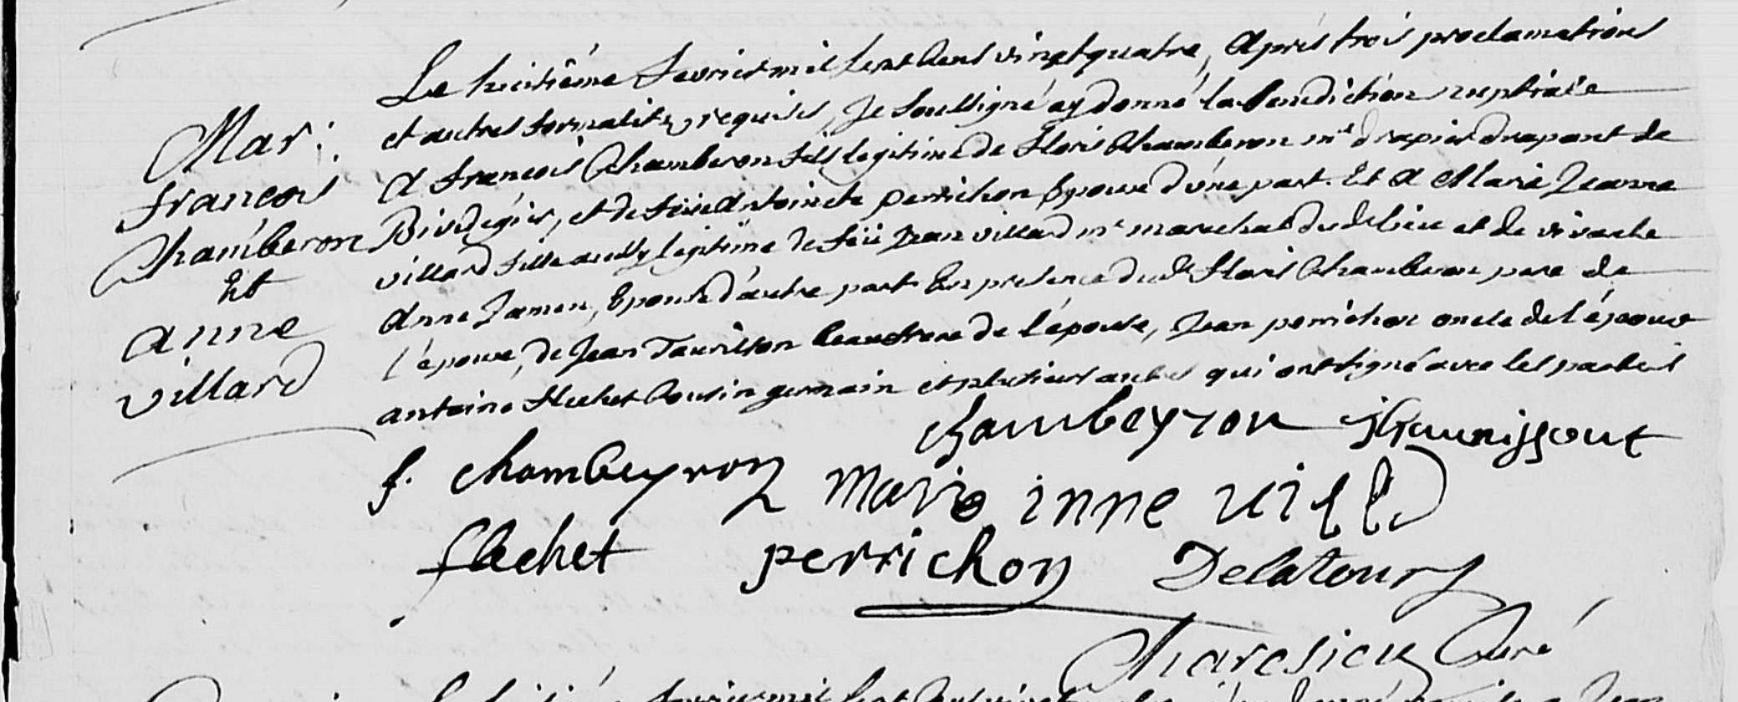 Mar:
françois
Chamberon
Et
anne
villard
Le huitième fevrier mil sept cens vingt quatre, après trois proclamations
et autres formalitez requises, Je soussigné ay donné la benediction nuptiale
A françois Chamberon fils legitime de Floris Chamberon mre drapier drapant de
et de feüe Antoinete perrichon Epoux d'une part. Et A Marie Jeanne
villard fille aussy legitime de feü Jean villard mre mareschal dud. lieu et de vivante
Anne Jamen, Epouse d'autre part. En presence dud. Floris Chamberon pere de
l'epoux, de Jean beaufrere de l'épouse, Jean perrichon oncle de l'époux
antoine flechet Cousin germain et plusieurs autres qui ont signé avec les parties
chambeyron
f. chambeyron Marie inne villd
flechet perrichon Delatour
Curé